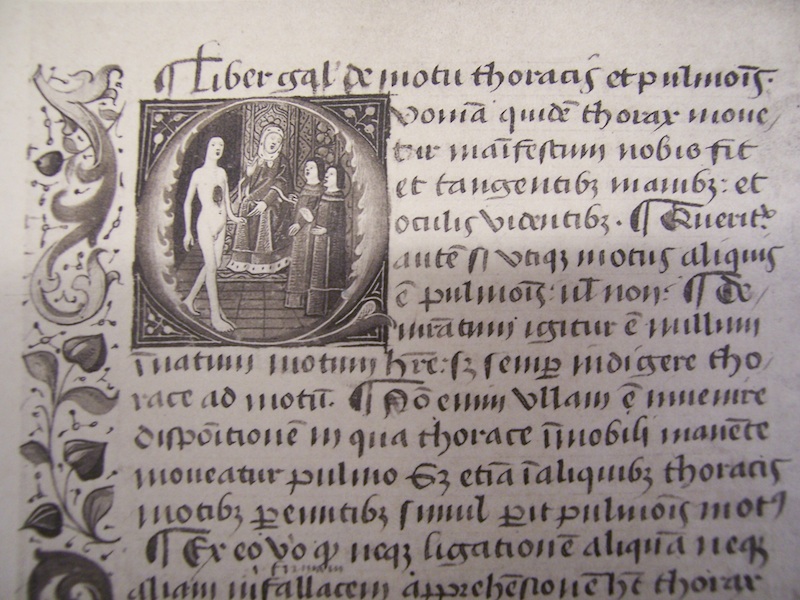 ¶ Liber gal' de motu thoracis et pulmoīs.
Quoniā quidē thorax moue/
tur maīfestum nobis fit
et tangentibꝫ manibꝫ: et
oculis videntibꝫ. ¶ Querit᷑
autē si vtiqꝫ motus aliquis
ē pulmoīs: ul' non: ¶ De/
muratum igitur ē nullum
īnatum motum hr̄e: sꝫ semꝑ indigere tho/
race ad motū. ¶ Nō enim vllam ē inuenire
dispōitionē in qua thorace īmobili manēte
moueatur pulmo Sꝫ etiā ī aliquibꝫ thoracis
motibꝫ ꝑeuntibꝫ simul ꝑit pulmoīs motꝰ
¶ Ex eo vo ꝙ neqꝫ ligationē aliquā neqꝫ
aliam infallacem apprehēsionē hꝫ thorax